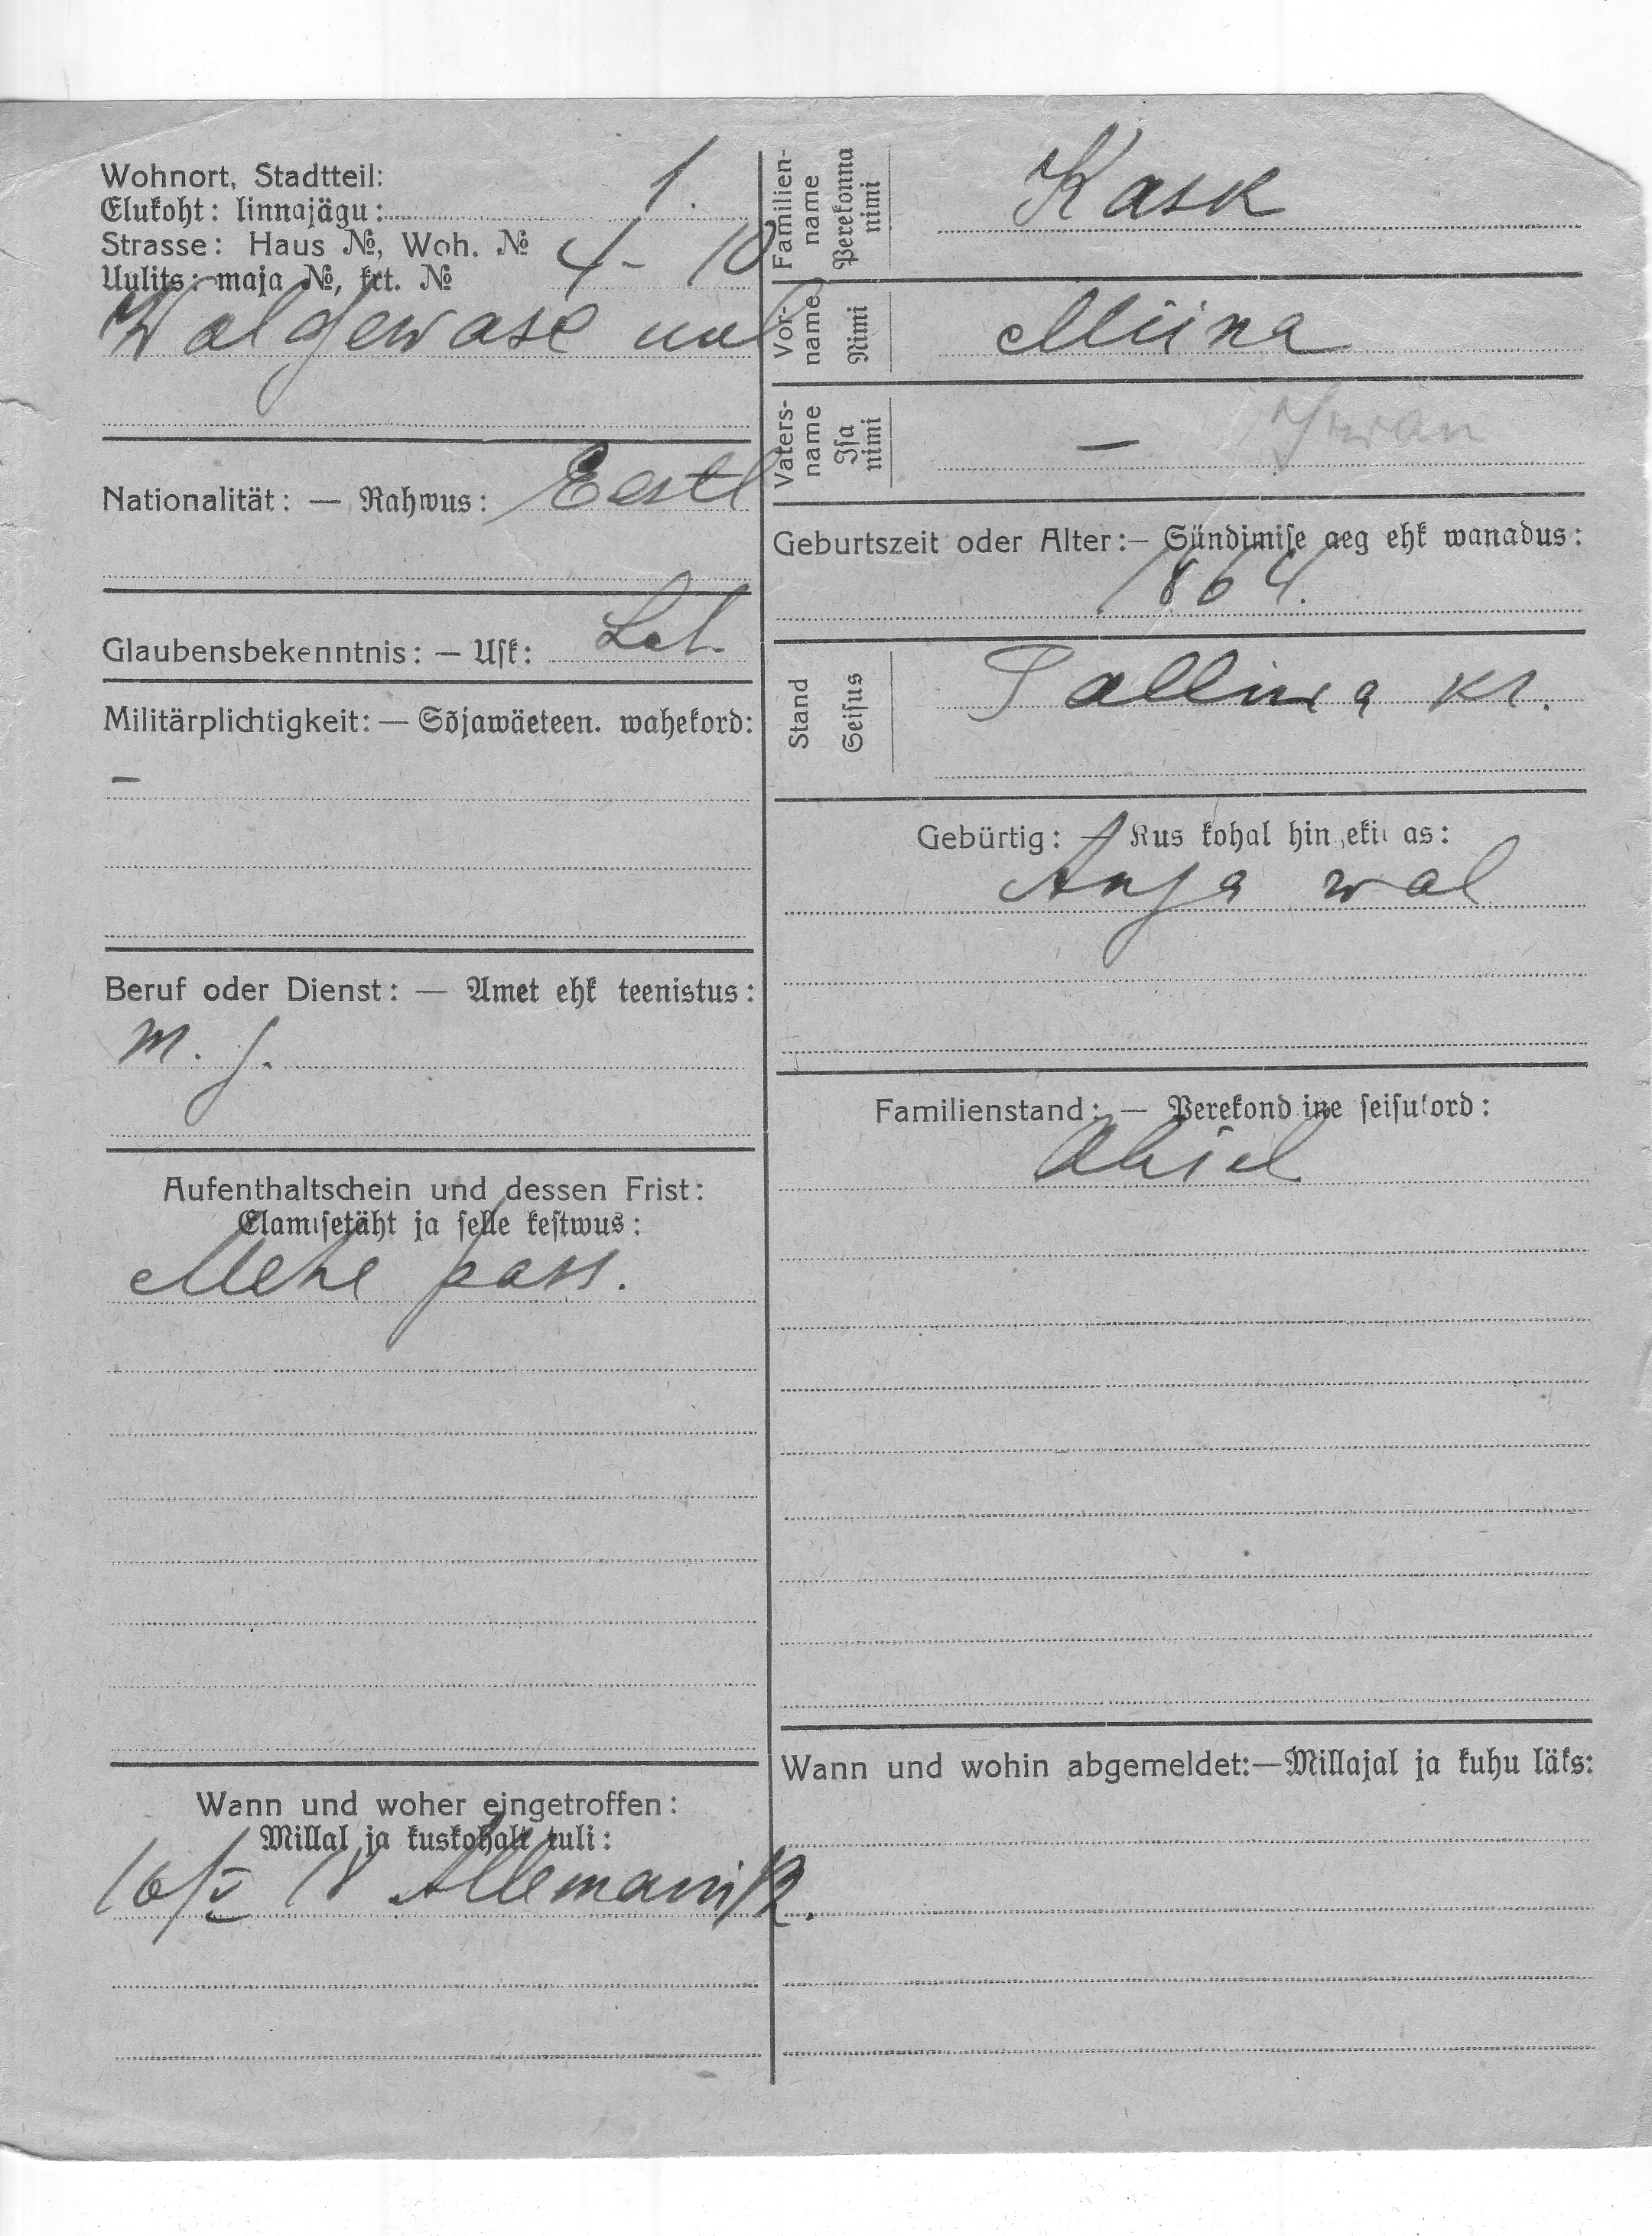 Wohnort, Stadtteil:
Elukoht: linnajägu: 1.
Strasse: Haus №, Woh. № 4 - 10
Uulits: maja №, krt. №
Walgewase uul
Nationalität: — Rahwus: Eestl
Glaubensbekenntnis: — Usk: Lut.
Militärplichtigkeit: — Sõjawäeteen. wahekord:
—
Beruf oder Dienst: — Amet ehk teenistus:
m. j.
Aufenthaltschein und dessen Frist:
Elamisetäht ja selle kestwus:
Mehe pass.
Wann und woher eingetroffen:
Millal ja kuskohalt tuli:
16/V 18 Allemanih.
Familien-
name
Perekonna
nimi
Kask
Vor-
name
Nimi
Miina
Vaters-
name
Isa
nimi
—
Geburtszeit oder Alter:— Sündimise aeg ehk wanadus:
1864.
Stand
Seisus
Tallinna kr.
Gebürtig: — Kus kohal hin eki as:
Anja wal
Familienstand: — Perekond ine seisukord:
Abiel
Wann und wohin abgemeldet:—Millajal ja kuhu läks: